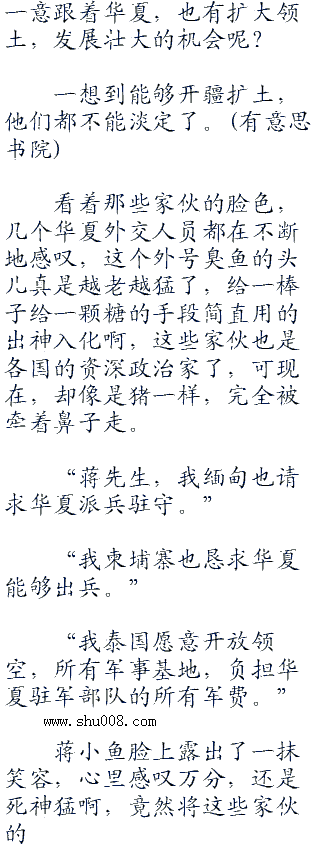 一意跟着华夏，也有扩大领
土，发展壮大的机会呢？
一想到能够开疆扩土，
他们都不能淡定了。(有意思
书院)
看着那些家伙的脸色，
几个华夏外交人员都在不断
地感叹，这个外号臭鱼的头
儿真是越老越猛了，给一棒
子给一颗糖的手段简直用的
出神入化啊，这些家伙也是
各国的资深政治家了，可现
在，却像是猪一样，完全被
牵着鼻子走。
“蒋先生，我缅甸也请
求华夏派兵驻守。”
“我柬埔寨也恳求华夏
能够出兵。”
“我泰国愿意开放领
空，所有军事基地，负担华
夏驻军部队的所有军费。”
www.shu008.com
蒋小鱼脸上露出了一抹
笑容，心里感叹万分，还是
死神猛啊，竟然将这些家伙
的